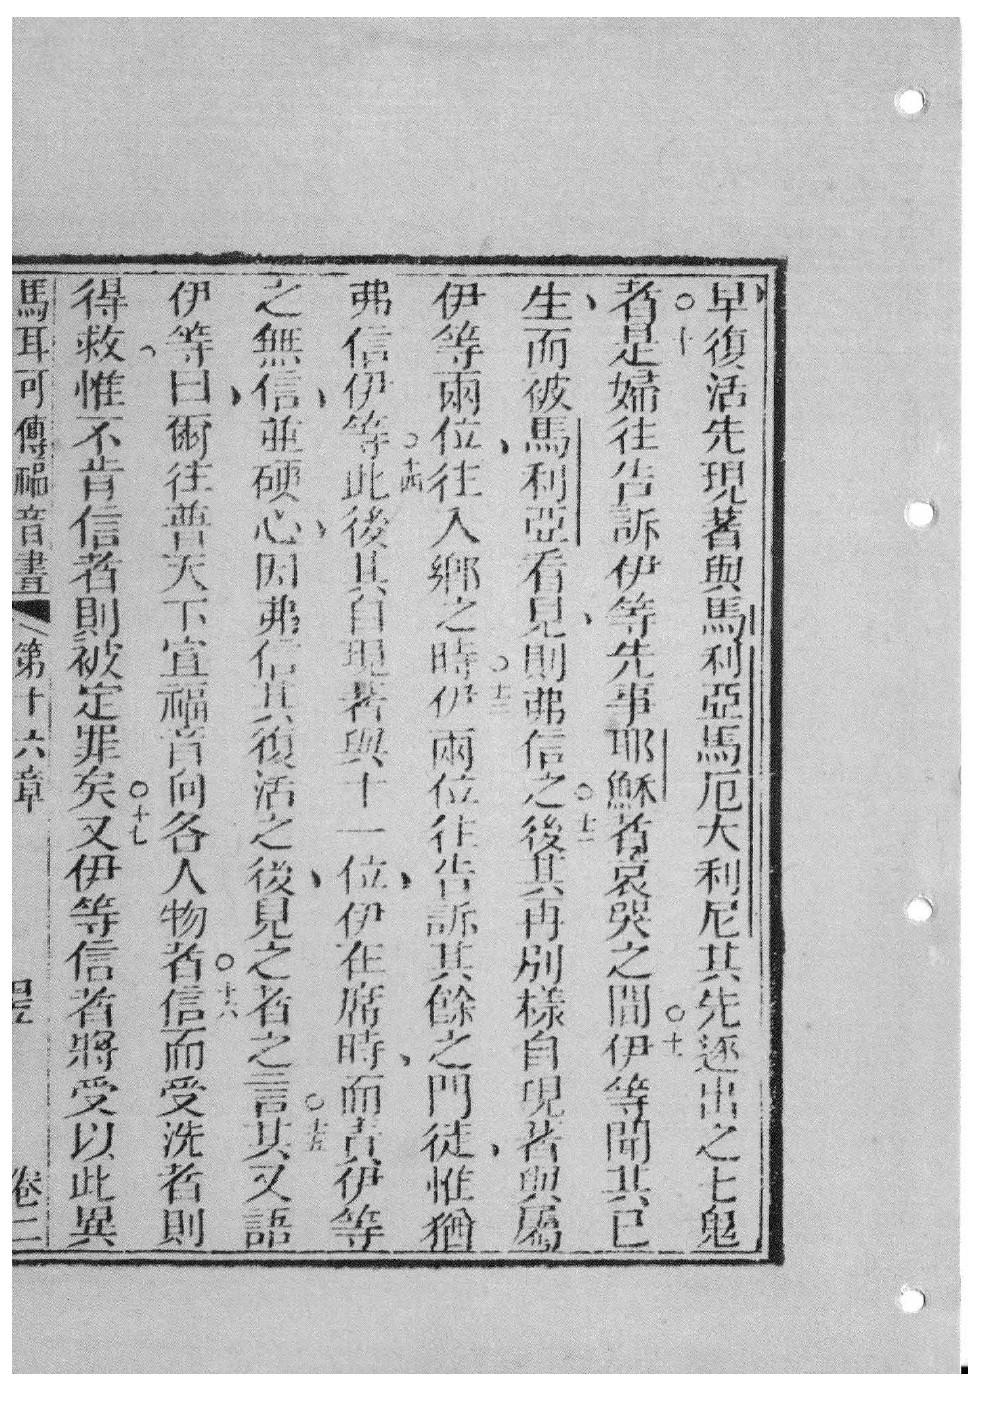 早復活先現著與馬利亞馬厄大利尼其先逐出之七鬼
者○十是婦往告訴伊等先事耶穌者哀哭之間○十一伊等聞其已
生而被馬利亞看見則弗信之○十二後其再別樣自現著與屬
伊等兩位往入鄉之時○十三伊兩位往告訴其餘之門徒惟猶
弗信伊等○十四此後其自現著與十一位伊在席時而責伊等
之無信並硬心因弗信其復活之後見之者之言○十五其又語
伊等曰爾往普天下宣福音向各人物者○十六信而受洗者則
得救惟不肯信者則被定罪矣○十七又伊等信者將受以此異
馬耳可傳福音書 第十六章 卷二